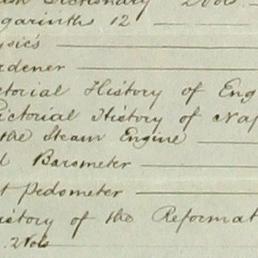 Dictionary 2 Vols
garinths 12
ysics
rdener
torial History of Eng
Pictorial History of Nap
the Steam Engine
d Barometer
t pedometer
istory of the Reformat
. 2 Vols